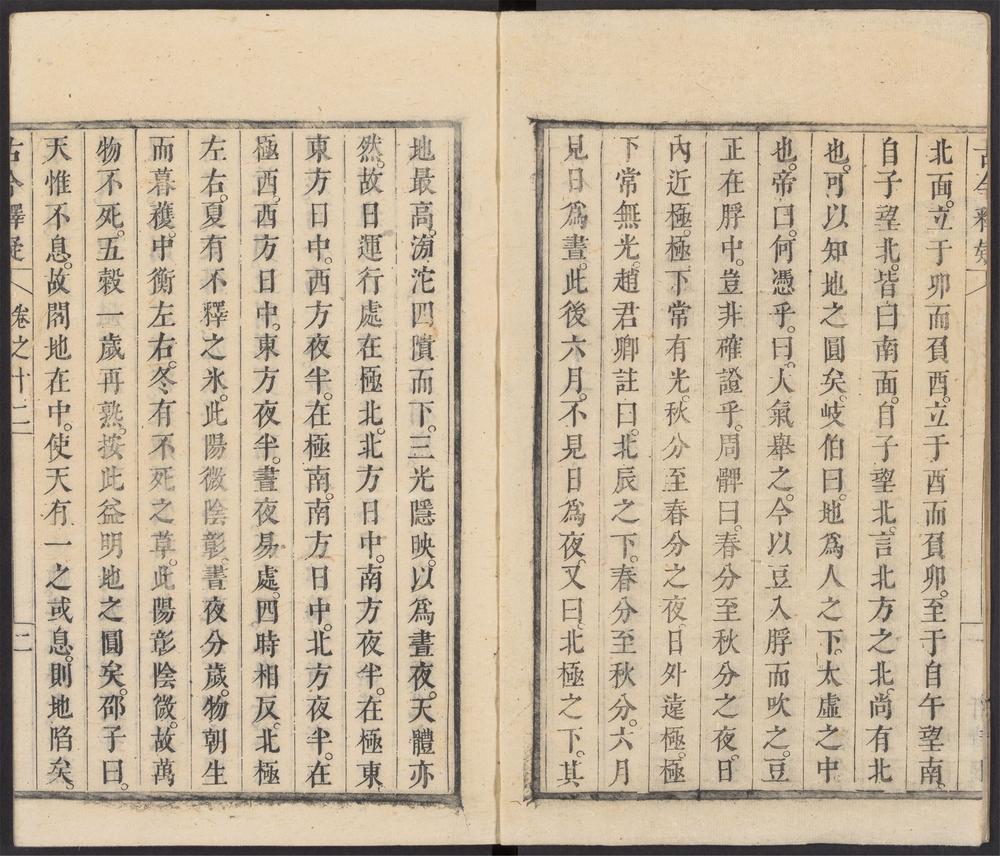 北面。立于卯而負酉。立于酉而負卯。至于自午望南。
自子望北。皆曰南面。自子望北。言北方之北。尚有北
也。可以知地之圓矣。岐伯曰。地爲人之下。太虛之中
也。帝曰。何憑乎。曰。大氣舉之。今以豆入脬而吹之。豆
正在脬中。豈非確證乎。周髀曰。春分至秋分之夜。日
內近極。極下常有光。秋分至春分之夜。日外遠極。極
下常無光。趙君卿註曰。北辰之下。春分至秋分。六月
見日爲晝。此後六月。不見日爲夜。又曰。北極之下。其
地最高。滂沱四隤而下。三光隱映。以爲晝夜。天體亦
然。故日運行處在極北。北方日中。南方夜半。在極東
東方日中。西方夜半。在極南。南方日中。北方夜半。在
極西。西方日中。東方夜半。晝夜易處。四時相反。北極
左右。夏有不釋之氷。此陽微陰彰。晝夜分歲。物朝生
而暮穫。中衡左右。冬有不死之草。此陽彰陰微。故萬
物不死。五穀一歲再熟。按此益明地之圓矣。邵子曰。
天惟不息。故閣地在中。使天有一之或息。則地陷矣。
古今釋疑 卷之十二 二